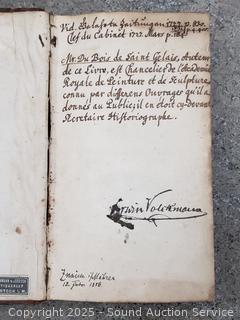 Vid. Gelahrte Zeitungen 1727. p. 830.
Clef du Cabinet 1727. Mars p.
Mr. Du Bois de Saint Gelais, Auteur
de ce Livre, est Chancelier de l'Academie
Royale de Peinture et de Sculpture,
connu par differens Ouvrages qu'il a
donnés au Public; il en étoit cy-devant
Secretaire Historiographe.
Erwin Volckmann
Znaim Mähren
12.
© 2025 - Sound Auction Service